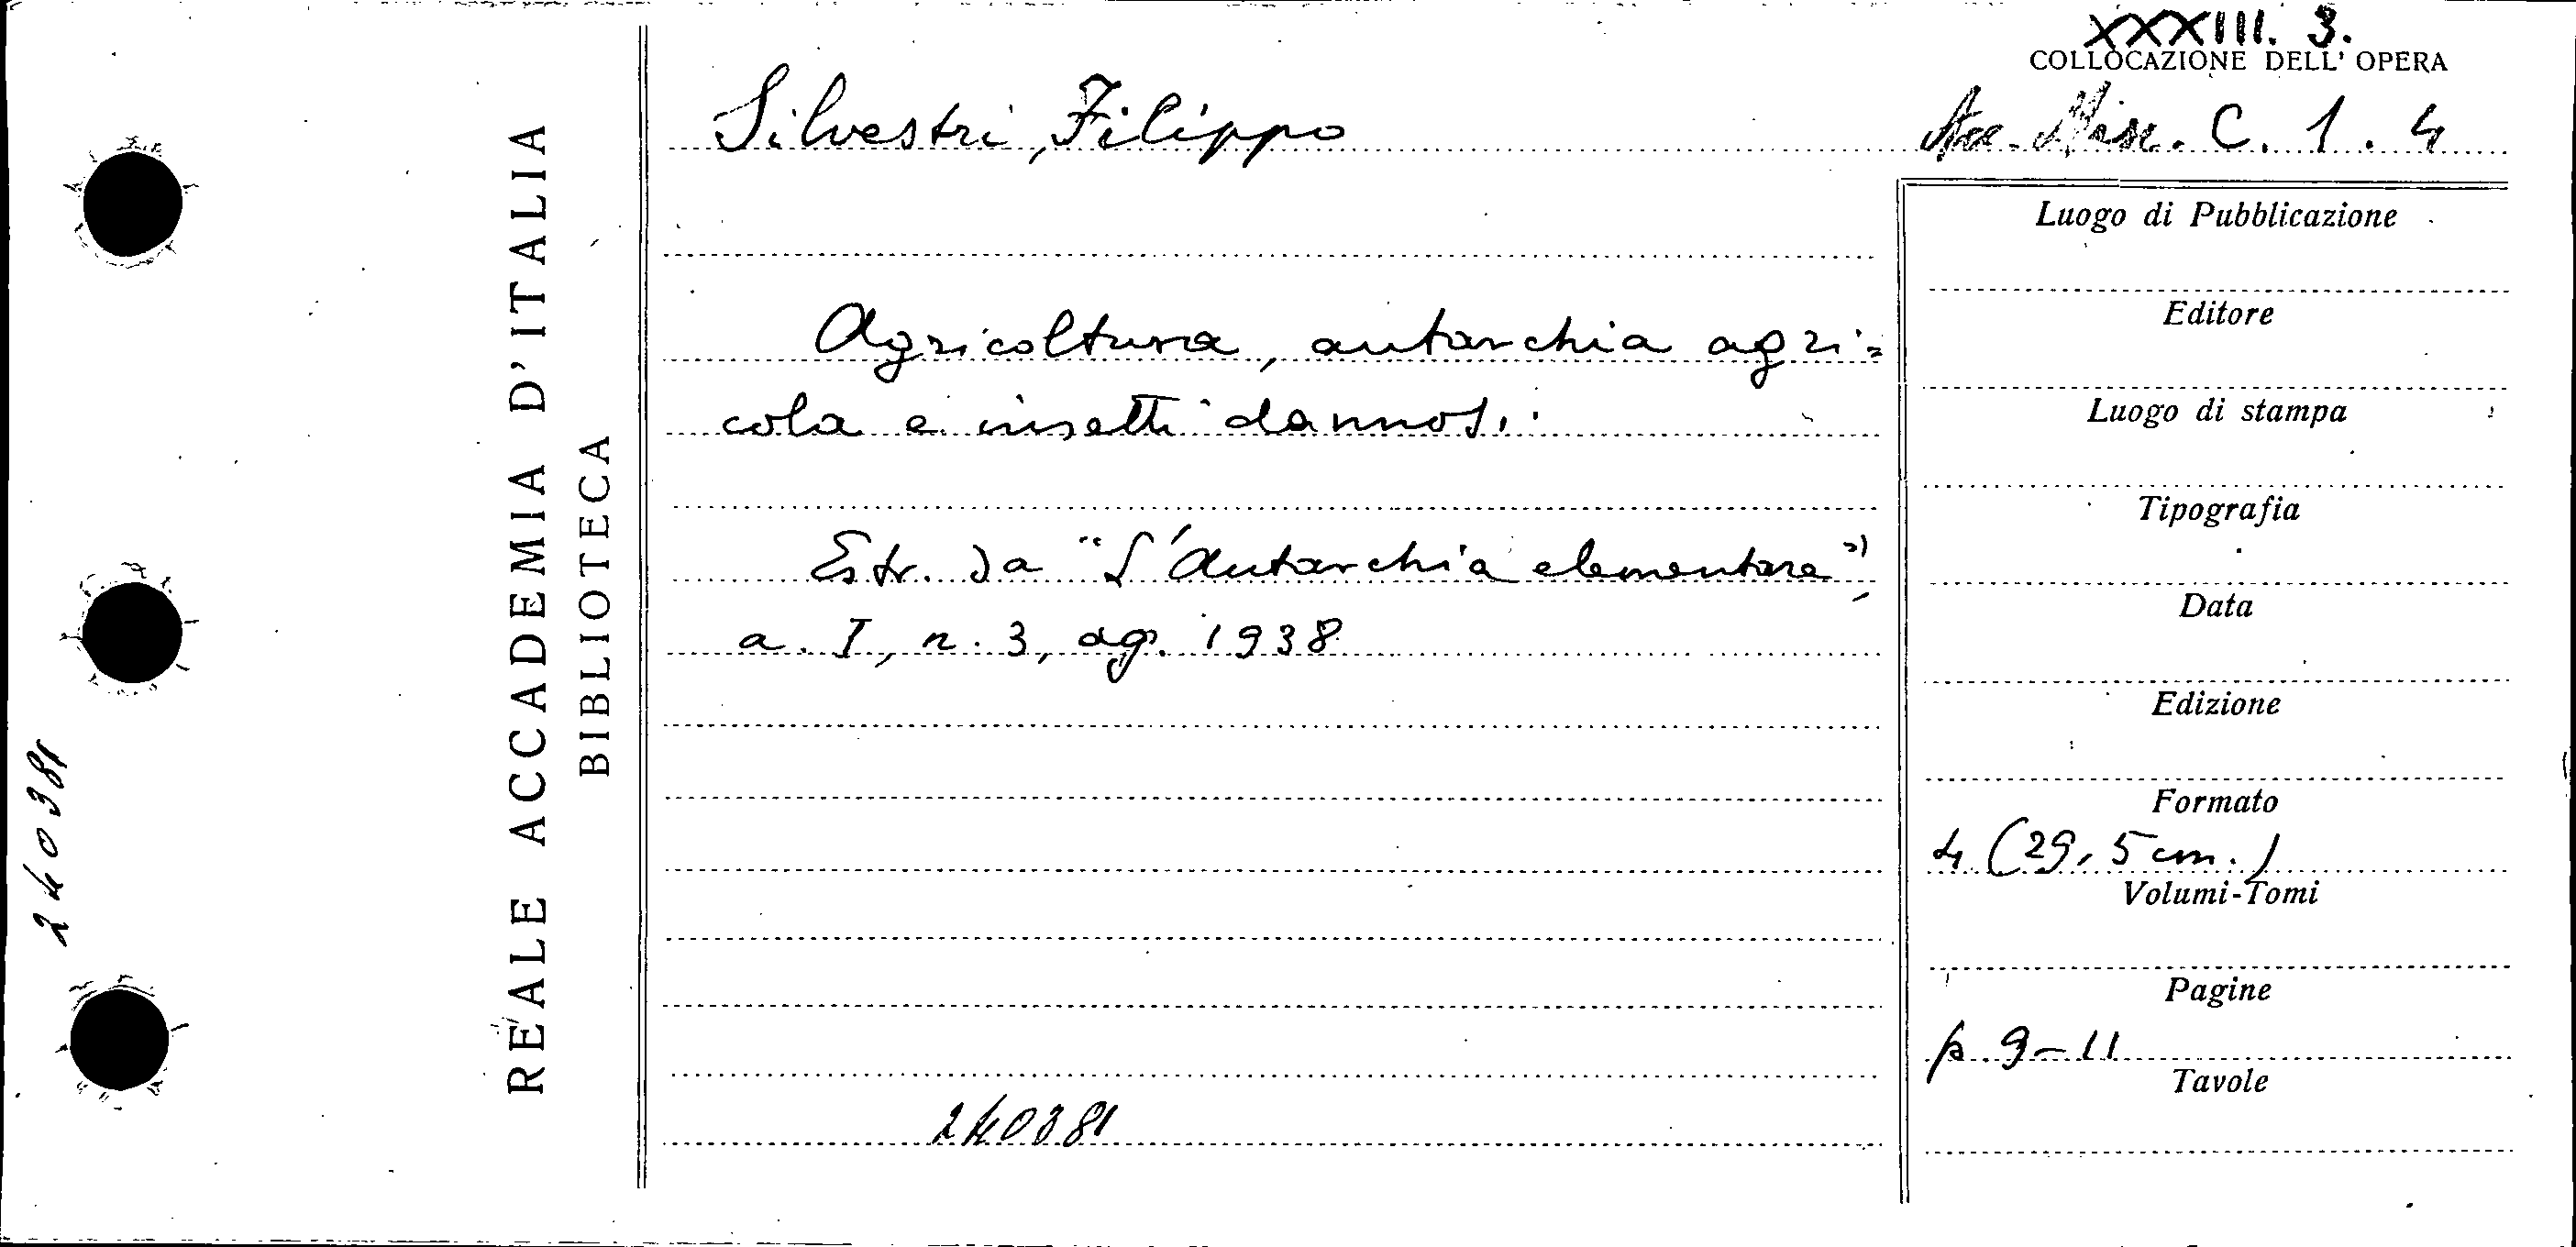 XXXIII. 3.
COLLOCAZIONE DELL' OPERA
Acc. Misc. C. 1. 4
REALE ACCADEMIA D'ITALIA
BIBLIOTECA
240381
Silvestri, Filippo
Agricoltura, autarchia agri=
cola e insetti dannosi.
Estr. da "L'Autarchia elementare",
a. I, n. 3, ag. 1938
240381
Luogo di Pubblicazione
Editore
Luogo di stampa
Tipografia
Data
Edizione
Formato
4 (29,5 cm.)
Volumi-Tomi
Pagine
p. 9-11
Tavole